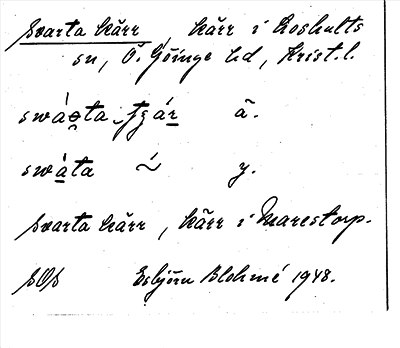 Svarta kärr, kärr i Loshults
sn, Ö. Göinge hd, Krist. l.
swáta tɟár ä.
swáta ~ y.
Svarta kärr, kärr i Marestorp.
SOS Esbjörn Blohmé 1948.